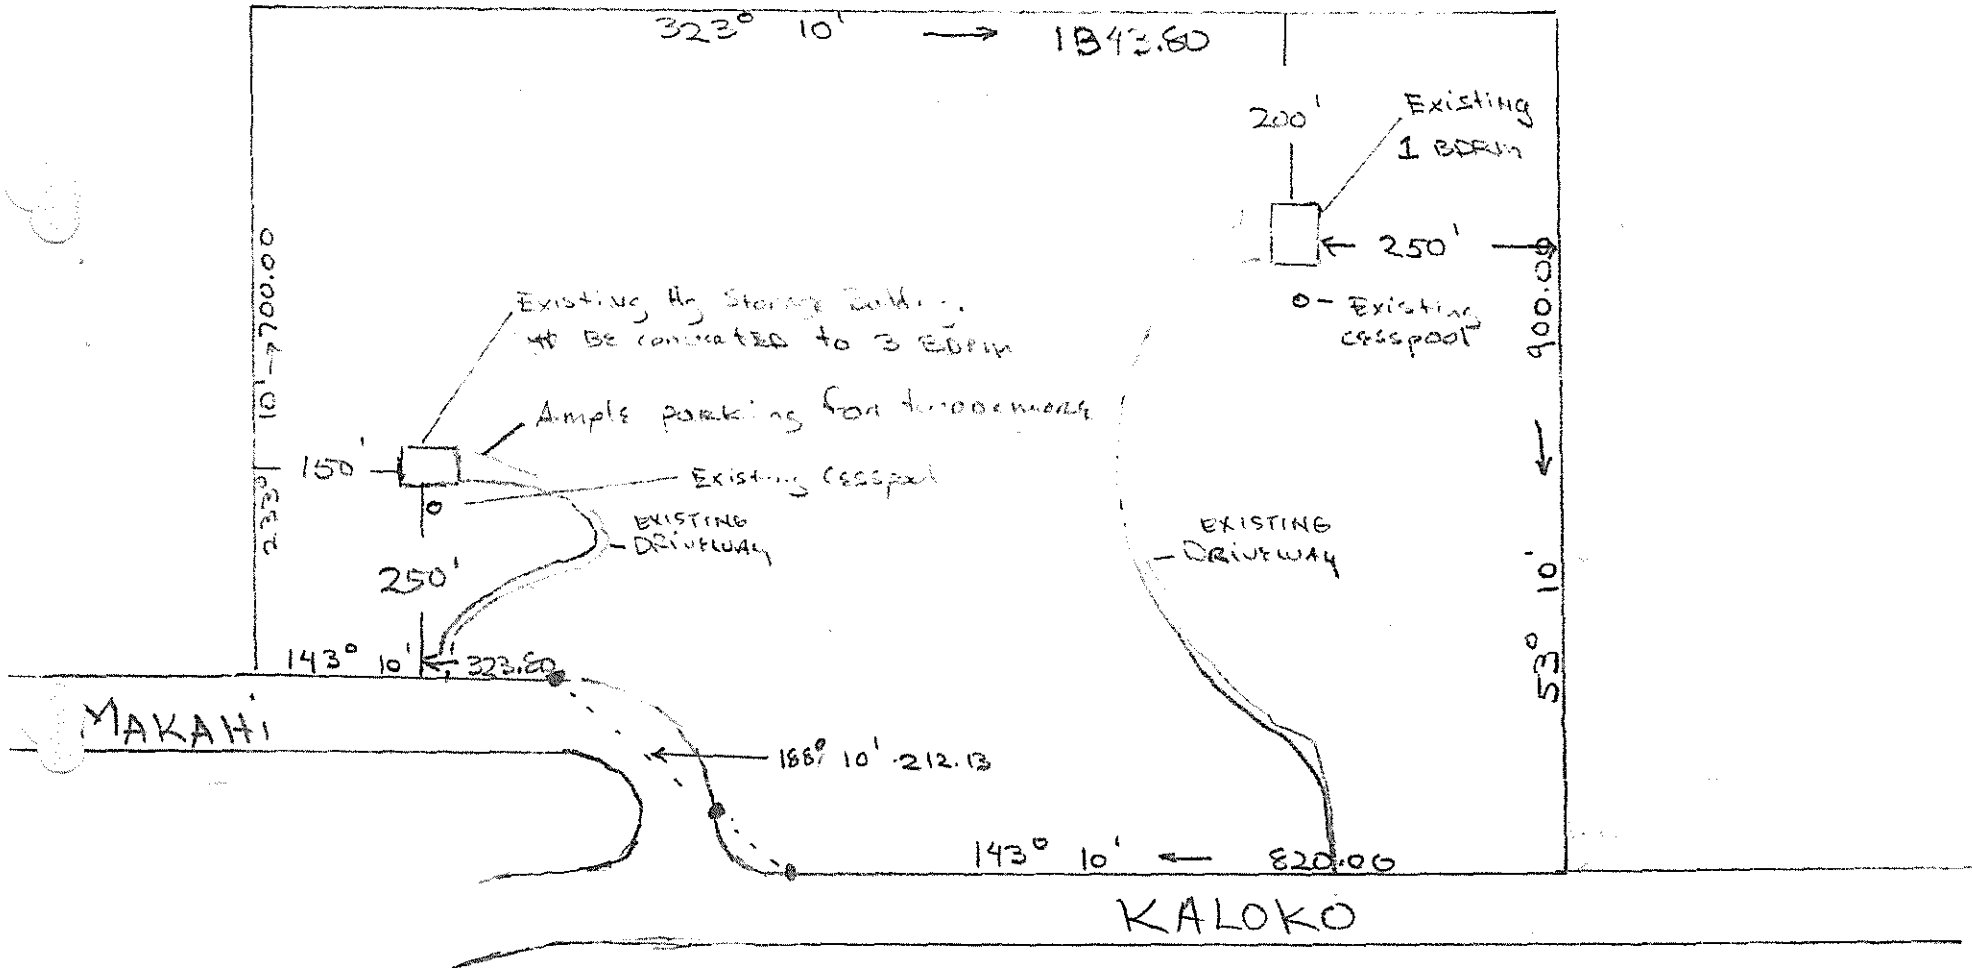 323° 10' → 1343.80
200'
Existing
1 BDRM
← 250' →
o- Existing
cesspool
900.00
←
53° 10'
233° 10' → 700.00
Existing Ag Storage
BE converted to 3 BDRM
Ample parking for two or more
150'
Existing Cesspool
EXISTING
DRIVEWAY
EXISTING
DRIVEWAY
250'
143° 10' ← 323.80
MAKAHI
← 188° 10' 212.13
143° 10' ← 820.00
KALOKO